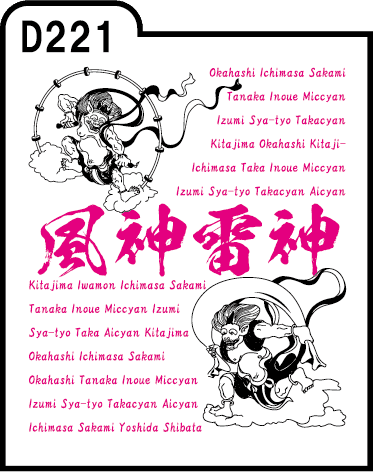 D221
Okahashi Ichimasa Sakami
Tanaka Inoue Miccyan
Izumi Sya-tyo Takacyan
Kitajima Okahashi Kitaji-
Ichimasa Taka Inoue Miccyan
Izumi Sya-tyo Takacyan Aicyan
風神雷神
Kitajima Iwamon Ichimasa Sakami
Tanaka Inoue Miccyan Izumi
Sya-tyo Taka Aicyan Kitajima
Okahashi Ichimasa Sakami
Okahashi Tanaka Inoue Miccyan
Izumi Sya-tyo Takacyan Aicyan
Ichimasa Sakami Yoshida Shibata